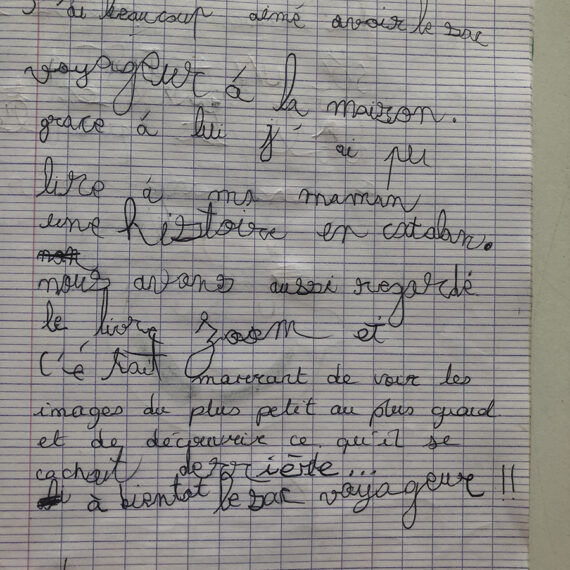 J'ai beaucoup aimé avoir le sac
voyageur à la maison.
grace à lui j'ai pu
lire à ma maman
une histoire en catalan.
nous avons aussi regardé
le livre zoom et
C'était marrant de voir les
images du plus petit au plus grand
et de découvrir ce qu'il se
cachait derrière...
à bientot le sac voyageur !!